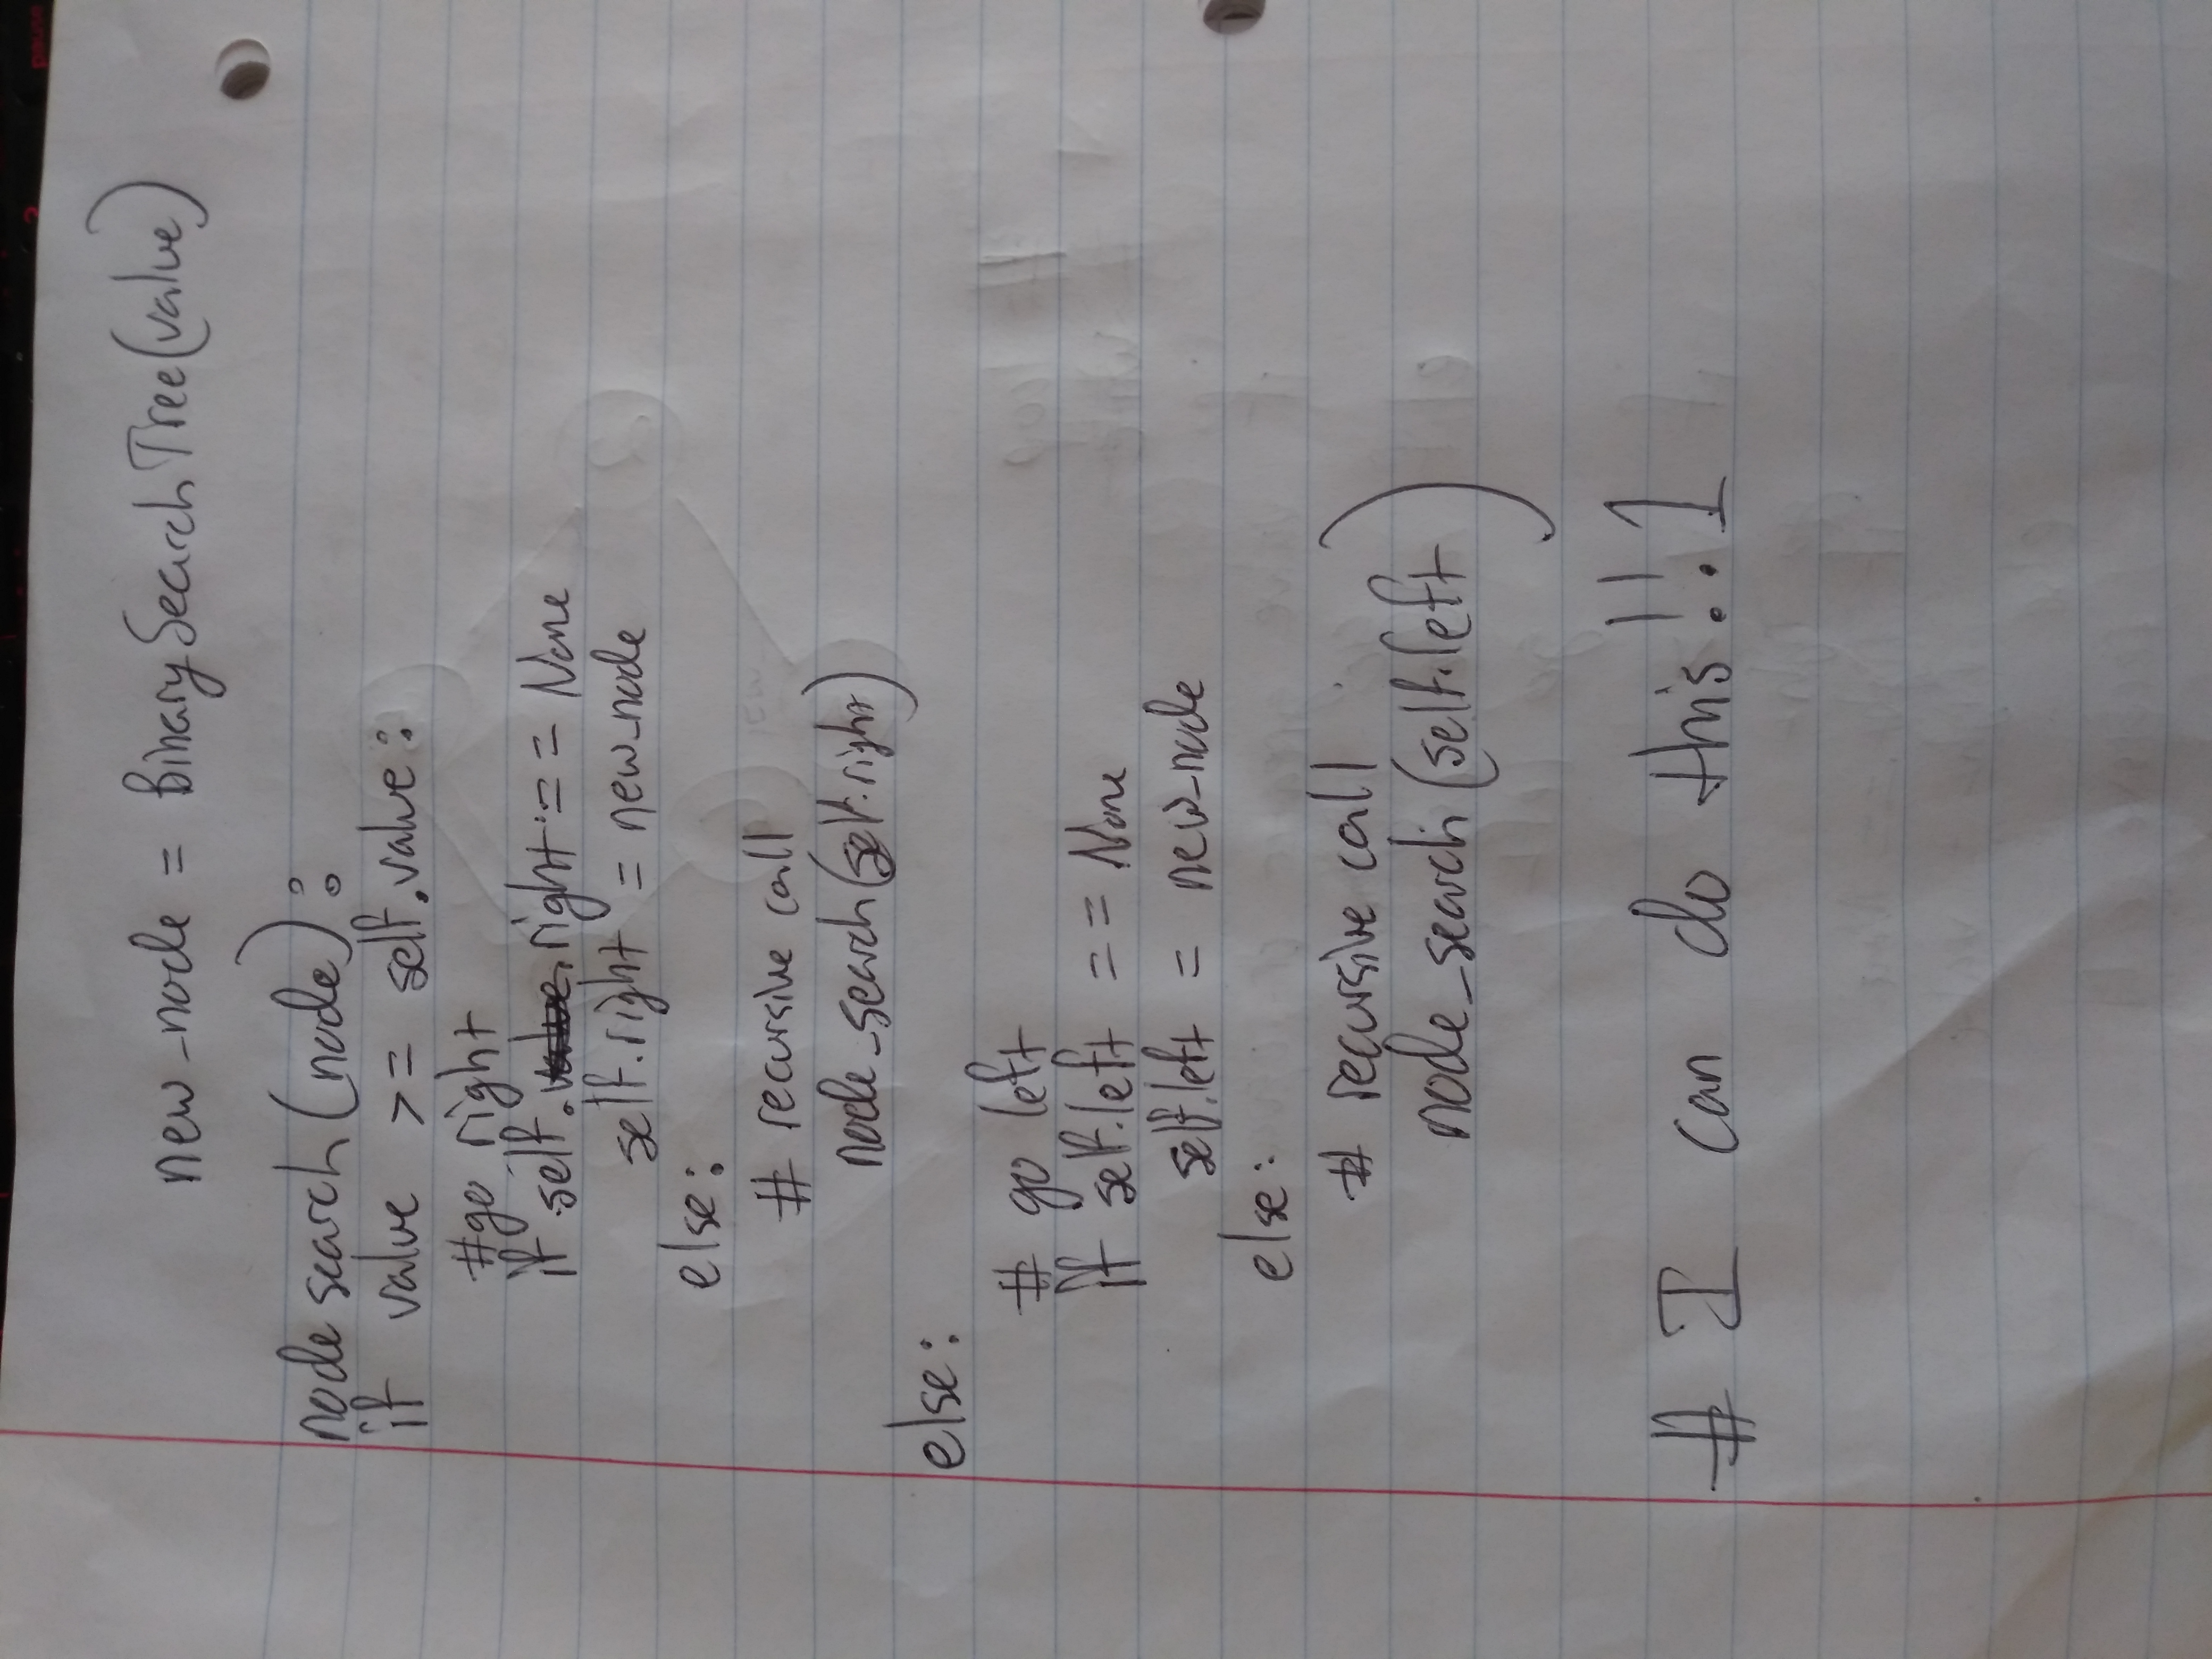 new_node = BinarySearchTree(value)
node search(node):
if value >= self.value:
#go right
if self.right == None
self.right = new_node
else:
# recursive call
node_search(self.right)
else:
# go left
if self.left == None
self.left = new_node
else:
# recursive call
node_search(self.left)
# I can do this!!1